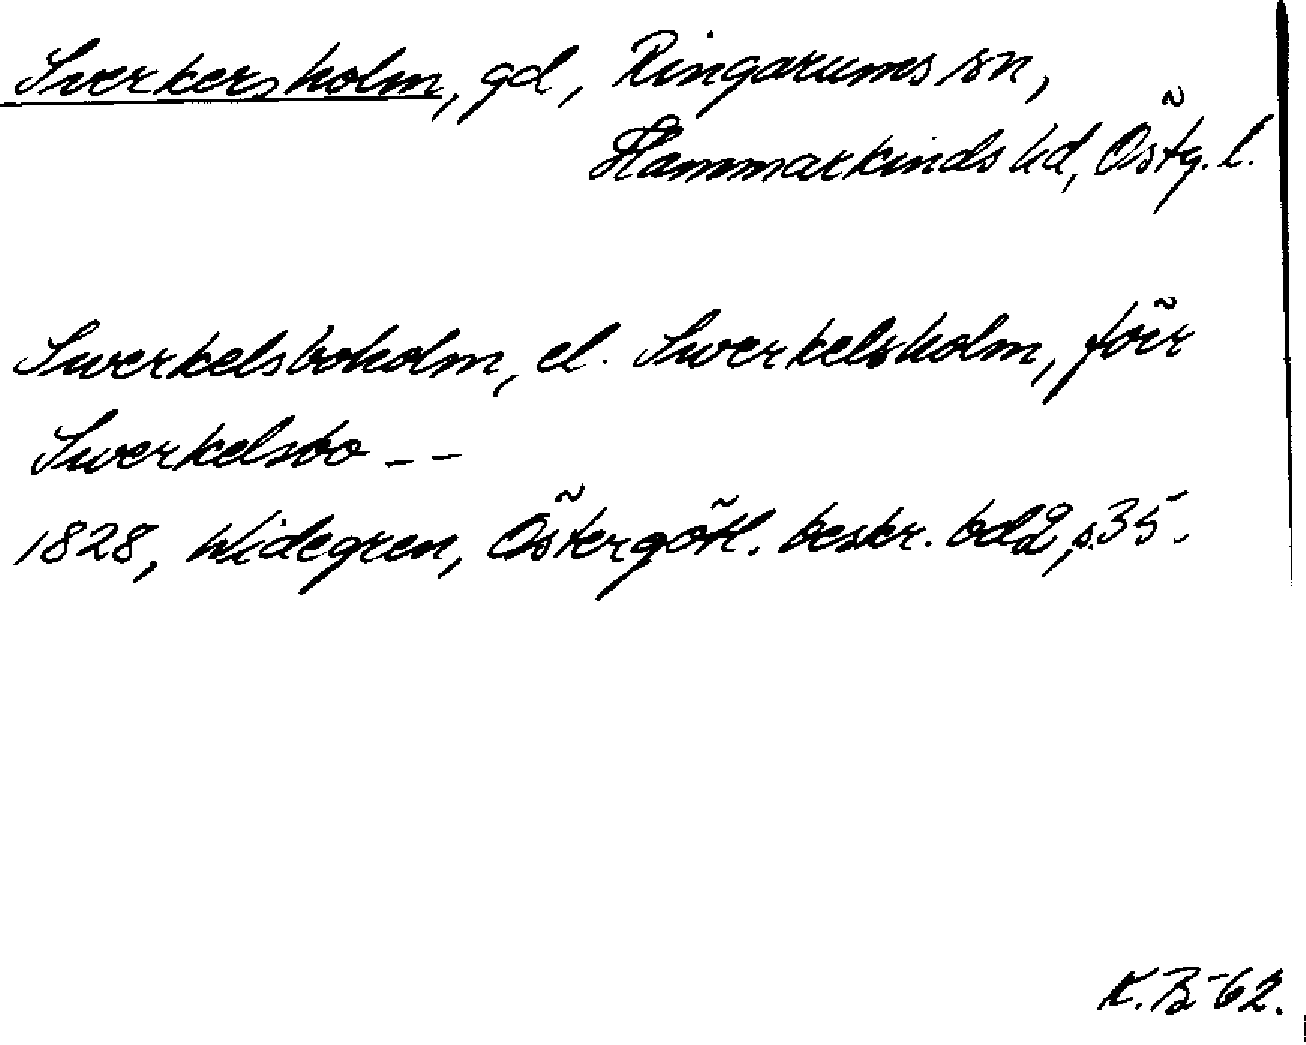 Sverkersholm, gd, Ringarums sn,
Hammarkinds hd, Östg. l.
Swerkelsboholm, el. Swerkelsholm, förr
Swerkelsbo --
1828, Widegren, Östergötl. beskr. bd 2, s. 35.
K. B-62.